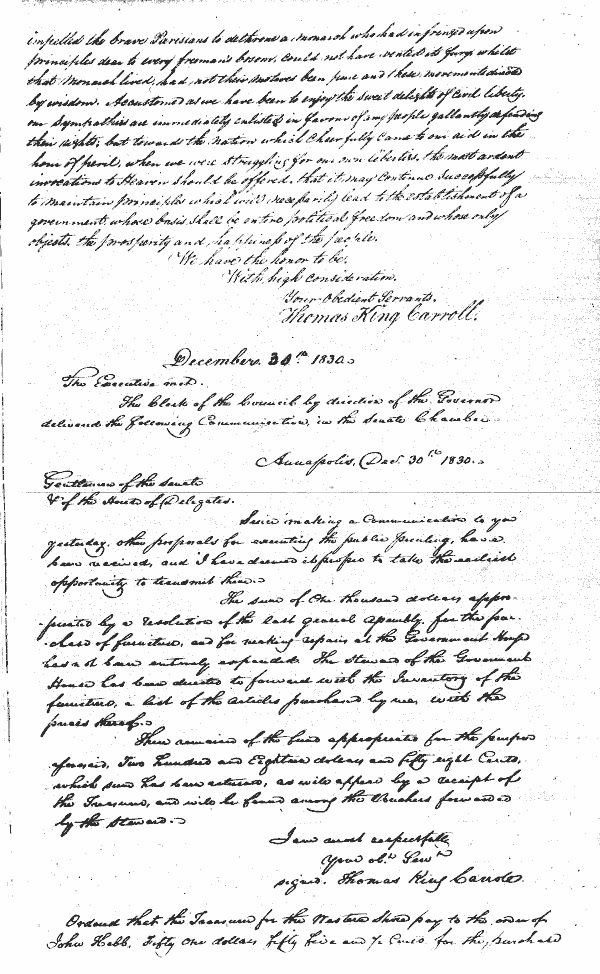 impelled the brave Parisians to dethrone a monarch who had infringed upon
principles dear to every freeman's bosom, could not have vented its fury whilst
that Monarch lived, had not their motives been pure and these movements directed
by wisdom. Accustomed as we have been to enjoy the sweet delights of civil liberty,
our sympathies are immediately enlisted in favour of any people gallantly defending
their rights, but towards the nation which cheerfully came to our aid in the
hour of peril, when we were struggling for our own liberties, the most ardent
invocations to Heaven should be offered, that it may continue successfully
to maintain principles which will necessarily lead to the establishment of a
government, whose basis shall be entire political freedom and whose only
objects, the prosperity and happiness of the people.
We have the honor to be,
With high consideration,
Your Obedient Servants,
Thomas King Carroll.
December 30th 1830.
The Executive met.
The Clerk of the Council by direction of the Governor
delivered the following Communication, in the Senate Chamber
Annapolis, Dec. 30th 1830.
Gentlemen of the Senate
& of the House of Delegates.
Since making a Communication to you
yesterday, other proposals for executing the public printing, have
been received, and I have deemed it proper to take the earliest
opportunity to transmit them.
The sum of One thousand dollars appro-
-priated by a resolution of the last general Assembly, for the pur-
-chase of furniture, and for making repairs at the Government House
has not been entirely expended. The Steward of the Government
House has been directed to forward with the Inventory of the
furniture, a list of the articles purchased by me, with the
prices thereof.
There remained of the fund appropriated for the purpose
aforesaid, Two hundred and Eighteen dollars and fifty eight Cents,
which sum has been returned, as will appear by a receipt of
the Treasurer, and will be found among the Vouchers forwarded
by the Steward.
I am most respectfully
Your obt. Servt
signed. Thomas King Carroll.
Ordered that the Treasurer for the Western Shore pay to the order of
John Hebb, Fifty One dollars fifty five and ½ Cents for the purchase